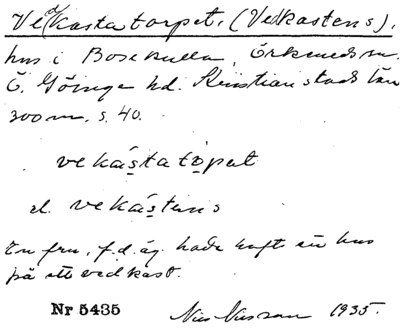 Vekastatorpet. (Vekastens).
hus i Bosekulla, Örkeneds sn.
Ö. Göinge hd. Kristianstads län
300 m. s. 40.
vekástatòpet
el. vekástens
En fru, f.d. äg. hade haft sin hus
på ett vedkast.
Nr 5435
1935.